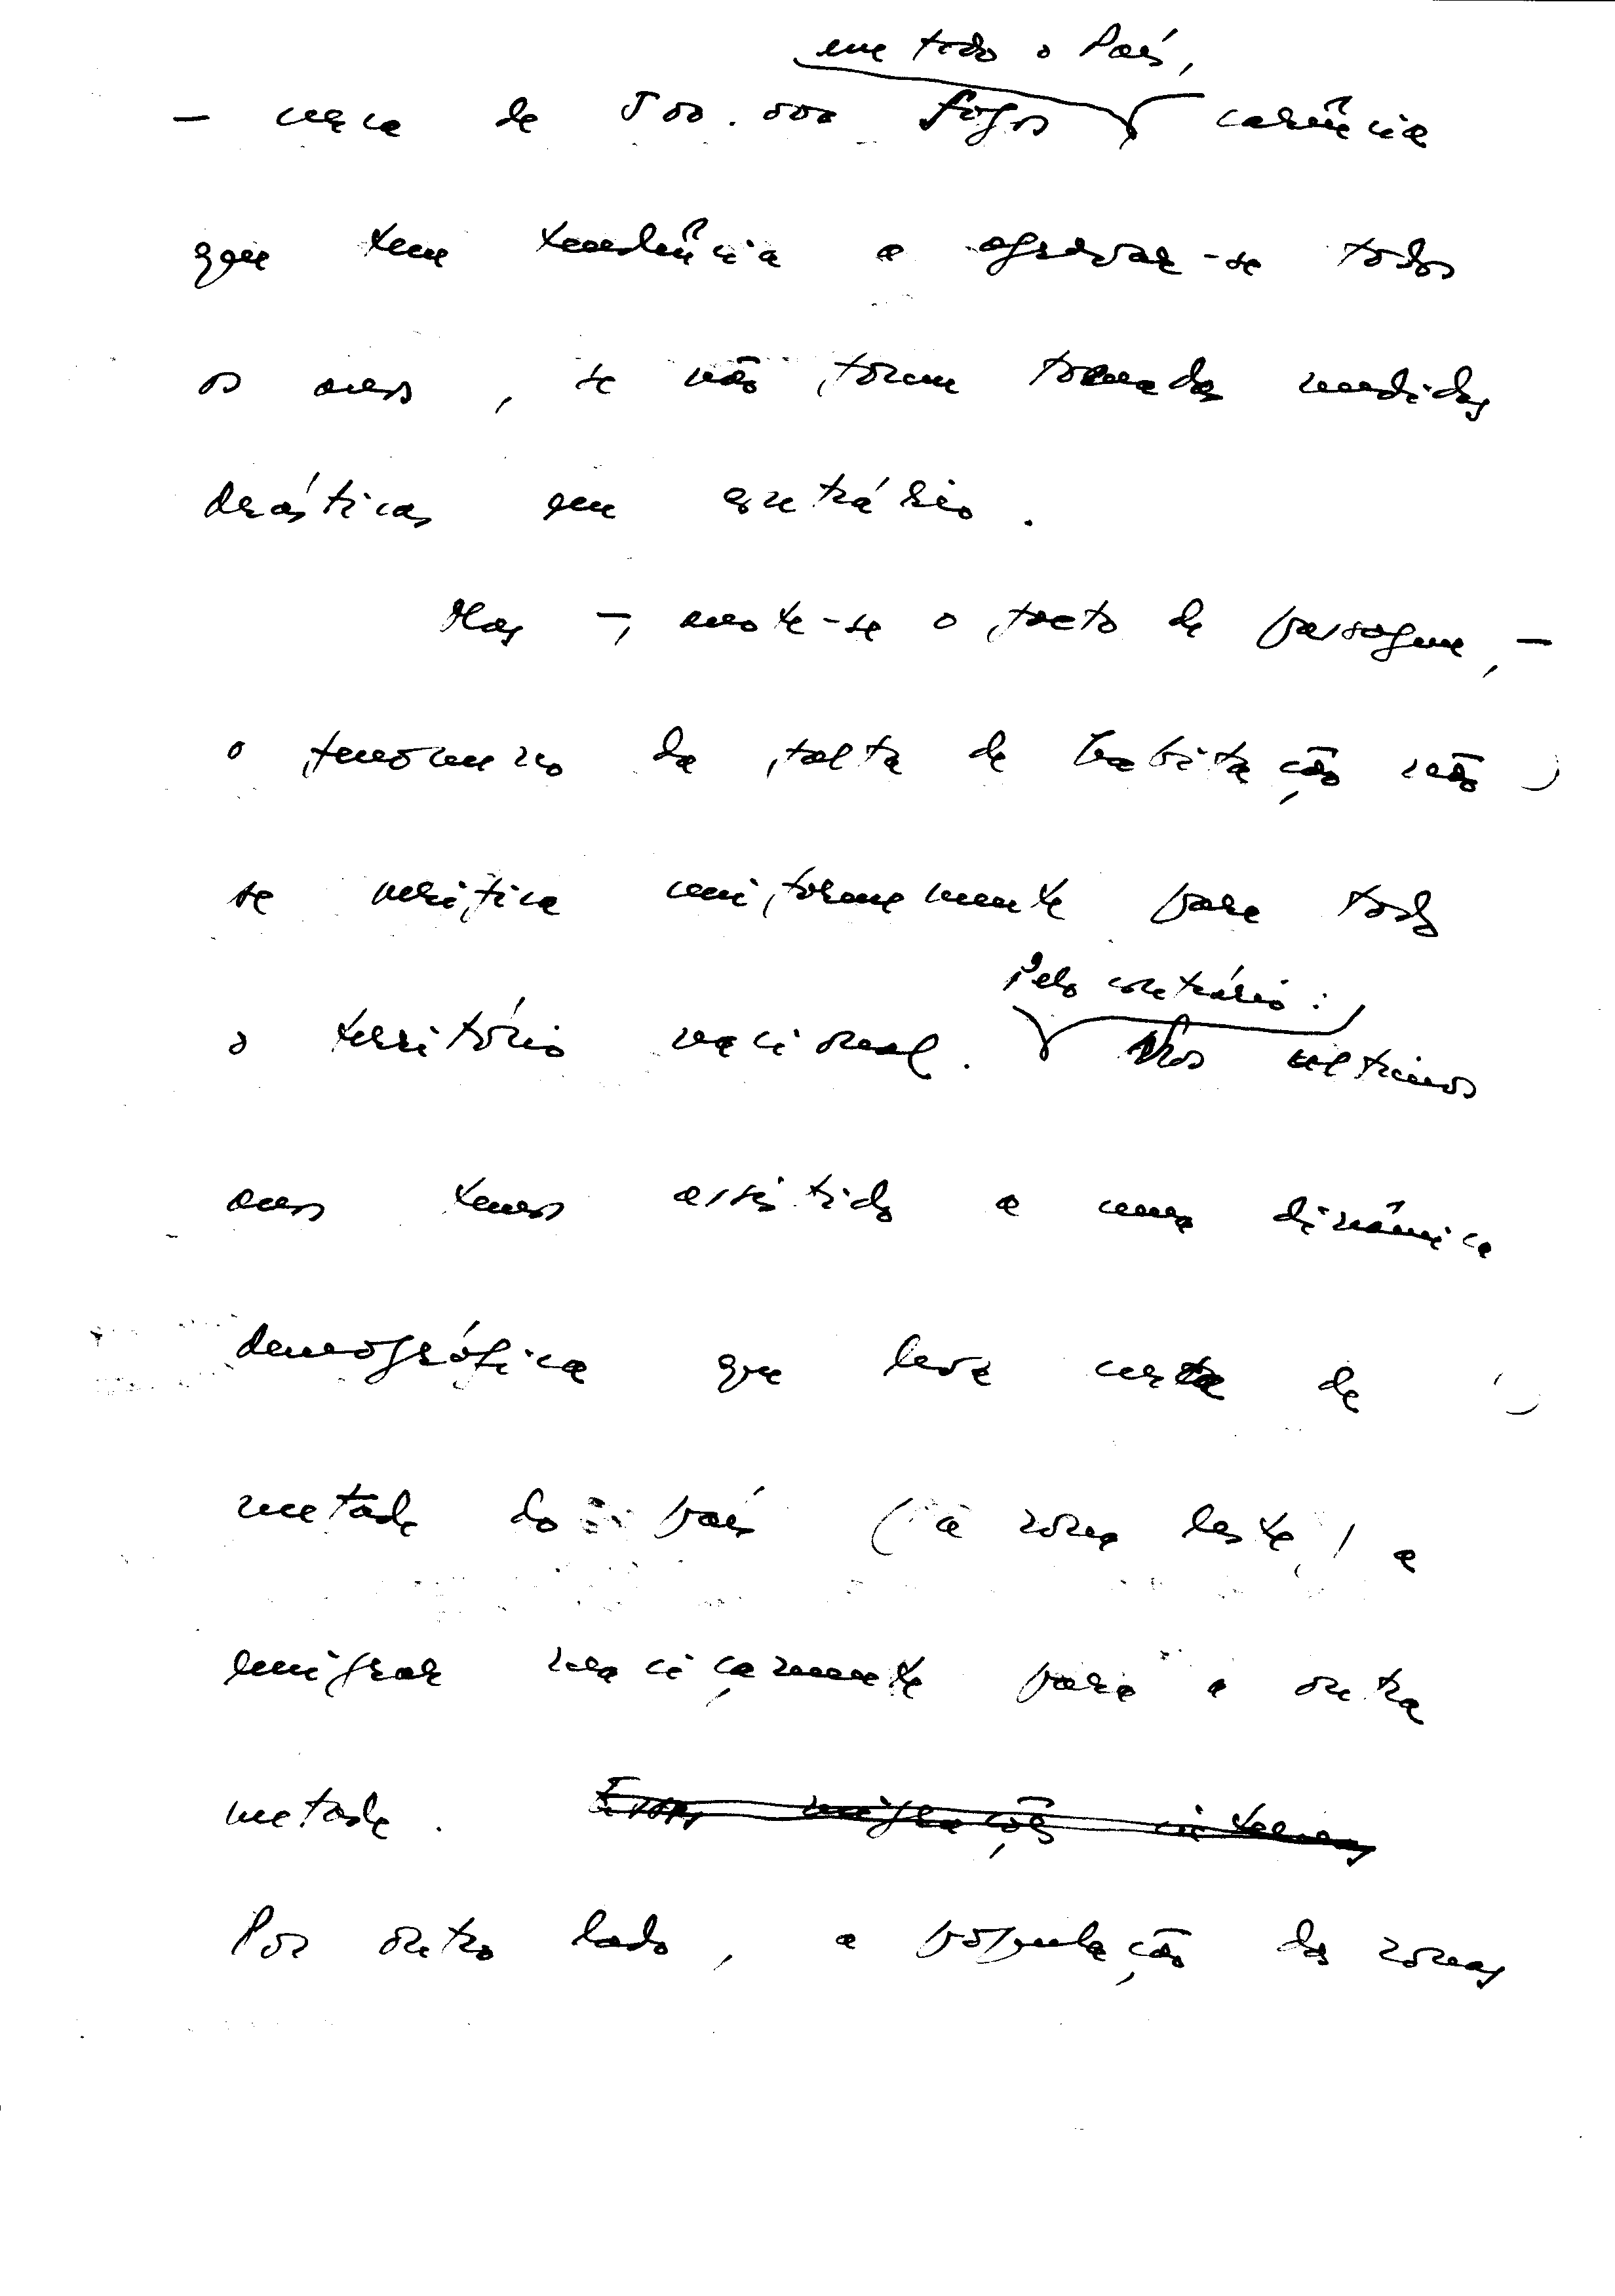 em todo o País,
- cerca de 500.000 fogos carência
que tem tendência a agravar-se todos
os anos, se não forem tomadas medidas
drásticas em contrário.
Mas -, anote-se o facto de passagem, -
o fenómeno da falta de habitação não
se verifica uniformemente para todo
Pelo contrário:
o território nacional. Nos ultimos
anos temos assistido a uma dinâmica
demográfica que leva certa de
metade do país (a zona leste) a
emigrar maciçamente para a outra
metade. Essas migrações internas
Por outro lado, a população das zonas